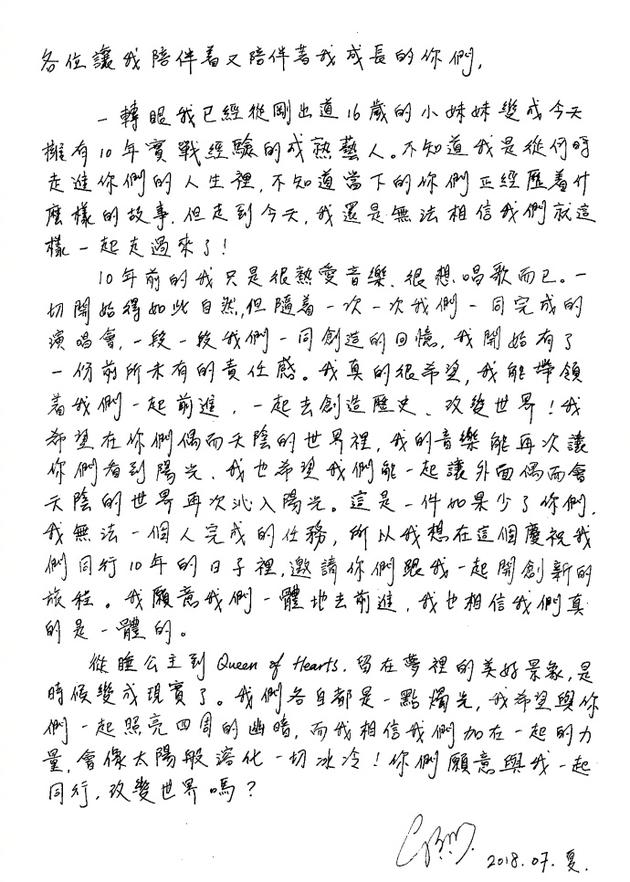 各位讓我陪伴着又陪伴著我成長的你們,
一轉眼我已經從剛出道16歲的小妹妹變成今天
擁有10年實戰經驗的成熟藝人。不知道我是從何時
走進你們的人生裡,不知道當下的你們正經歷着什
麼樣的故事.但走到今天,我還是無法相信我們就這
樣一起走過來了!
10年前的我只是很熱愛音樂、很想唱歌而已。一
切開始得如此自然,但隨着一次一次我們一同完成的
演唱會,一段一段我們一同創造的回憶,我開始有了
一份前所未有的責任感。我真的很希望,我能帶領
著我們一起前進,一起去創造歷史、改變世界!我
希望在你們偶而天陰的世界裡,我的音樂能再次讓
你們看到陽光、我也希望我們能一起讓外面偶而會
天陰的世界再次沁入陽光。這是一件如果少了你們,
我無法一個人完成的任務,所以我想在這個慶祝我
們同行10年的日子裡,邀請你們跟我一起開創新的
旅程。我願意我們一體地去前進,我也相信我們真
的是一體的。
從睡公主到Queen of Hearts.留在夢裡的美好景象,是
時候變成現實了。我們各自都是一點燭光,我希望與你
們一起照亮四周的幽暗,而我相信我們加在一起的力
量,會像太陽般溶化一切冰冷!你們願意與我一起
同行,改變世界嗎?
2018.07.夏.